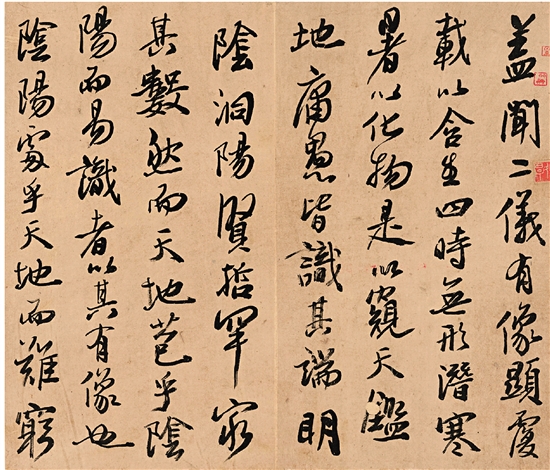 盖聞二儀有像顯覆
載以含生四時無形潛寒
暑以化物是以窺天鑑
地庸愚皆識其端明
陰洞陽賢哲罕窮
其數然而天地苞乎陰
陽而易識者以其有像也
陰陽處乎天地而難窮